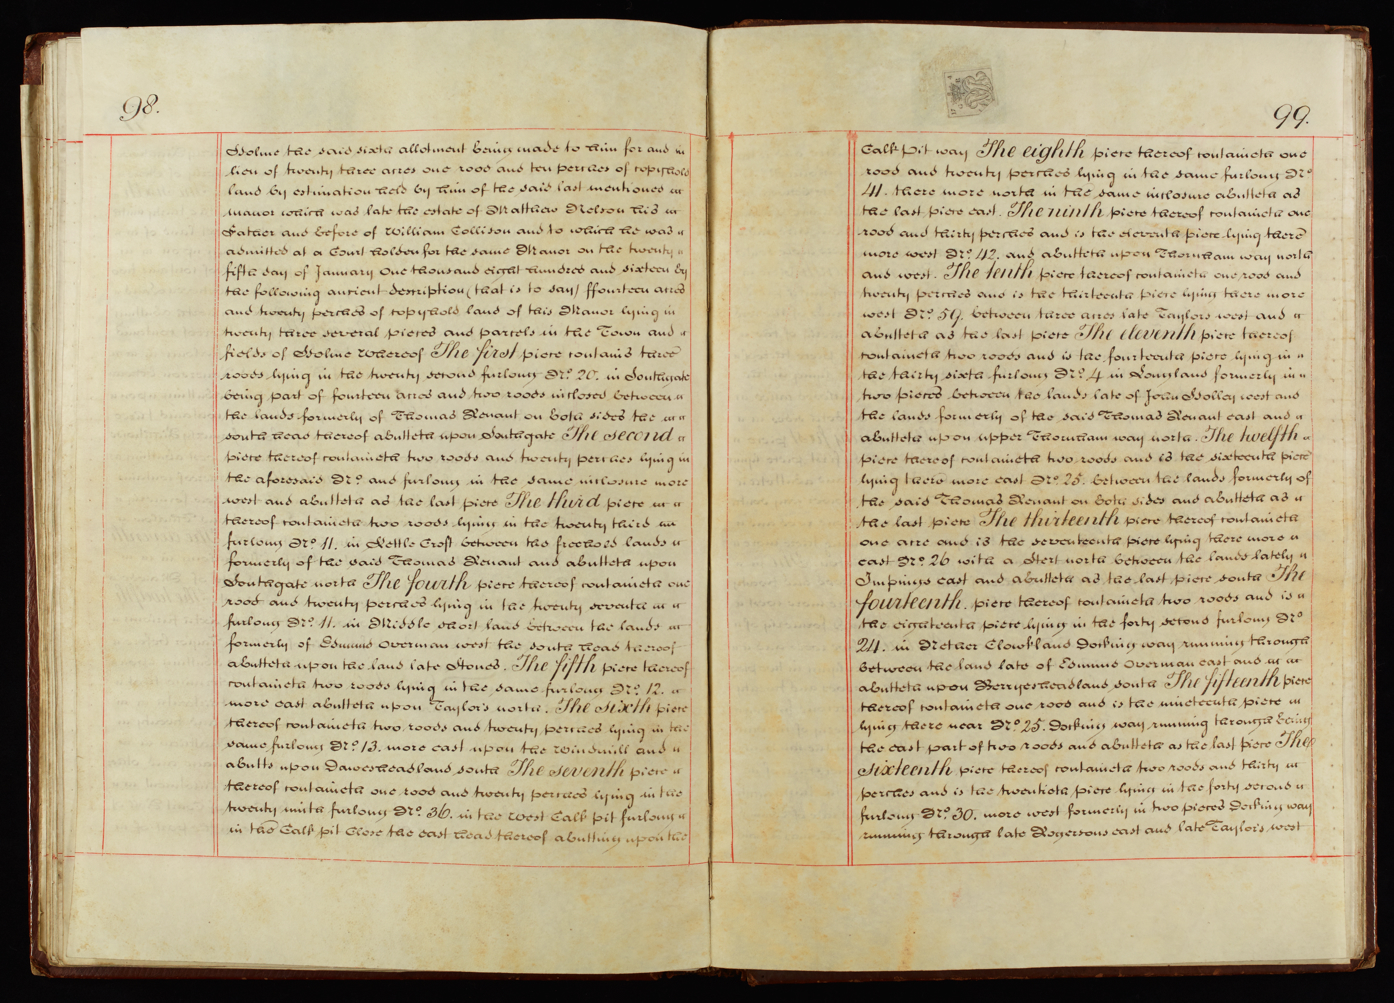 98.
Holme the said sixth allotment being made to him for and in
lieu of twenty three acres one rood and ten perches of copyhold
land by estimation held by him of the said last mentioned
manor which was late the estate of Matthew Nelson his
Father and before of William Collison and to which he was
admitted at a Court holden for the same Manor on the twenty
fifth day of January One thousand eight hundred and sixteen by
the following antient description (that is to say) ffourteen acres
and twenty perches of copyhold land of this Manor lying in
twenty three several pieces and parcels in the Town and
fields of Holme Whereof The first piece contains three
roods lying in the twenty second furlong No. 20. in Southgate
being part of fourteen acres and two roods inclosed between
the lands formerly of Thomas Renant on both sides the
south head thereof abutteth upon Southgate The second
piece thereof containeth two roods and twenty perches lying in
the aforesaid No. and furlong in the same inclosure more
west and abutteth as the last piece The third piece
thereof containeth two roods lying in the twenty third
furlong No. 11. in Kettle Croft between the freehold lands
formerly of the said Thomas Renant and abutteth upon
Southgate north The fourth piece thereof containeth one
rood and twenty perches lying in the twenty seventh
furlong No. 11. in Middle short land between the lands
formerly of Edmund Overman west the south head thereof
abutteth upon the land late Stones. The fifth piece thereof
containeth two roods lying in the same furlong No. 12.
more east abutteth upon Taylor's north. The sixth piece
thereof containeth two roods and twenty perches lying in the
same furlong No. 13. more east upon the Windmill and
abutts upon Dawesheadland south The seventh piece
thereof containeth one rood and twenty perches lying in the
twenty ninth furlong No. 36. in the West Calk pit furlong
in the Calk pit Close the east head thereof abutting upon the
99.
Calk Pit way The eighth piece thereof containeth one
rood and twenty perches lying in the same furlong No.
41. there more north in the same inclosure abutteth as
the last piece east. The ninth piece thereof containeth one
rood and thirty perches and is the eleventh piece lying there
more west No. 42. and abutteth upon Thornham way north
and west. The tenth piece thereof containeth one rood and
twenty perches and is the thirteenth piece lying there more
west No. 59. between three acres late Taylors west and
abutteth as the last piece The eleventh piece thereof
containeth two roods and is the fourteenth piece lying in
the thirty sixth furlong No. 4 in Longland formerly in
two pieces between the lands late of John Holley west and
the lands formerly of the said Thomas Renant east and
abutteth upon upper Thornham way north. The twelfth
piece thereof containeth two roods and is the sixteenth piece
lying there more east No. 25. between the lands formerly of
the said Thomas Renant on both sides and abutteth as
the last piece The thirteenth piece thereof containeth
one acre and is the seventeenth piece lying there more
east No. 26 with a Stert north between the lands lately
Impings east and abutteth as the last piece south The
fourteenth. piece thereof containeth two roods and is
the eighteenth piece lying in the forty second furlong No.
24. in Nether Clowkland Docking way running through
between the land late of Edmund Overman east and
abutteth upon Berryesheadland south The fifteenth piece
thereof containeth one rood and is the nineteenth piece
lying there near No. 25. Docking way running through being
the east part of two roods and abutteth as the last piece The
sixteenth piece thereof containeth two roods and thirty
perches and is the twentieth piece lying in the forty second
furlong No. 30. more west formerly in two pieces Docking way
running through late Rogersons east and late Taylors west